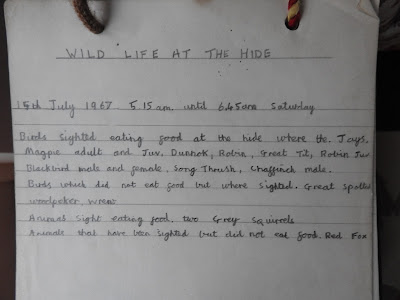 WILD LIFE AT THE HIDE
15th July 1967 5.15 am. until 6.45am Saturday
Birds sighted eating food at the hide where the. Jays,
Magpie adult and Juv. Dunnok, Robin, Great Tit, Robin Juv
Blackbird male and female, Song Thrush, Chaffinch male.
Birds which did not eat food but where sighted. Great Spotted
woodpeker, wren
Animas sight eating food. two Grey Squirrels
Animals that have been sighted but did not eat food. Red Fox